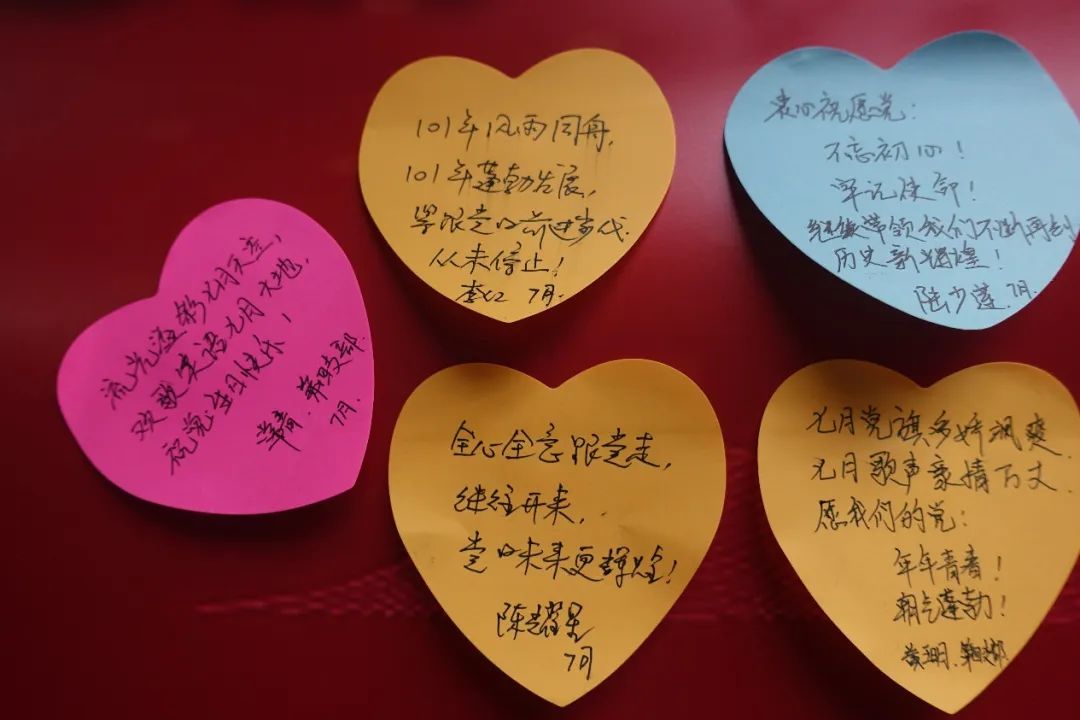 流光溢彩七月天空，
欢歌笑语七月大地，
祝党生日快乐，
第四支部
7月.
101年风雨同舟，
101年蓬勃发展，
紧跟党的前进步伐
从未停止！
李红 7月.
衷心祝愿党：
不忘初心！
牢记使命！
继续带领我们不断再创
历史新辉煌！
陆少莲 7月.
全心全意跟党走，
继往开来，
党的未来更辉煌！
陈耀星
7月
七月党旗多娇飒爽
七月歌声豪情万丈
愿我们的党：
年年青春！
朝气蓬勃！